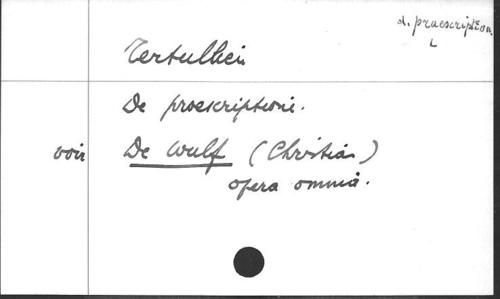 d. praescription.
L
Tertullien
De praescriptione.
voir De Wulf (Christian)
opera omnia.